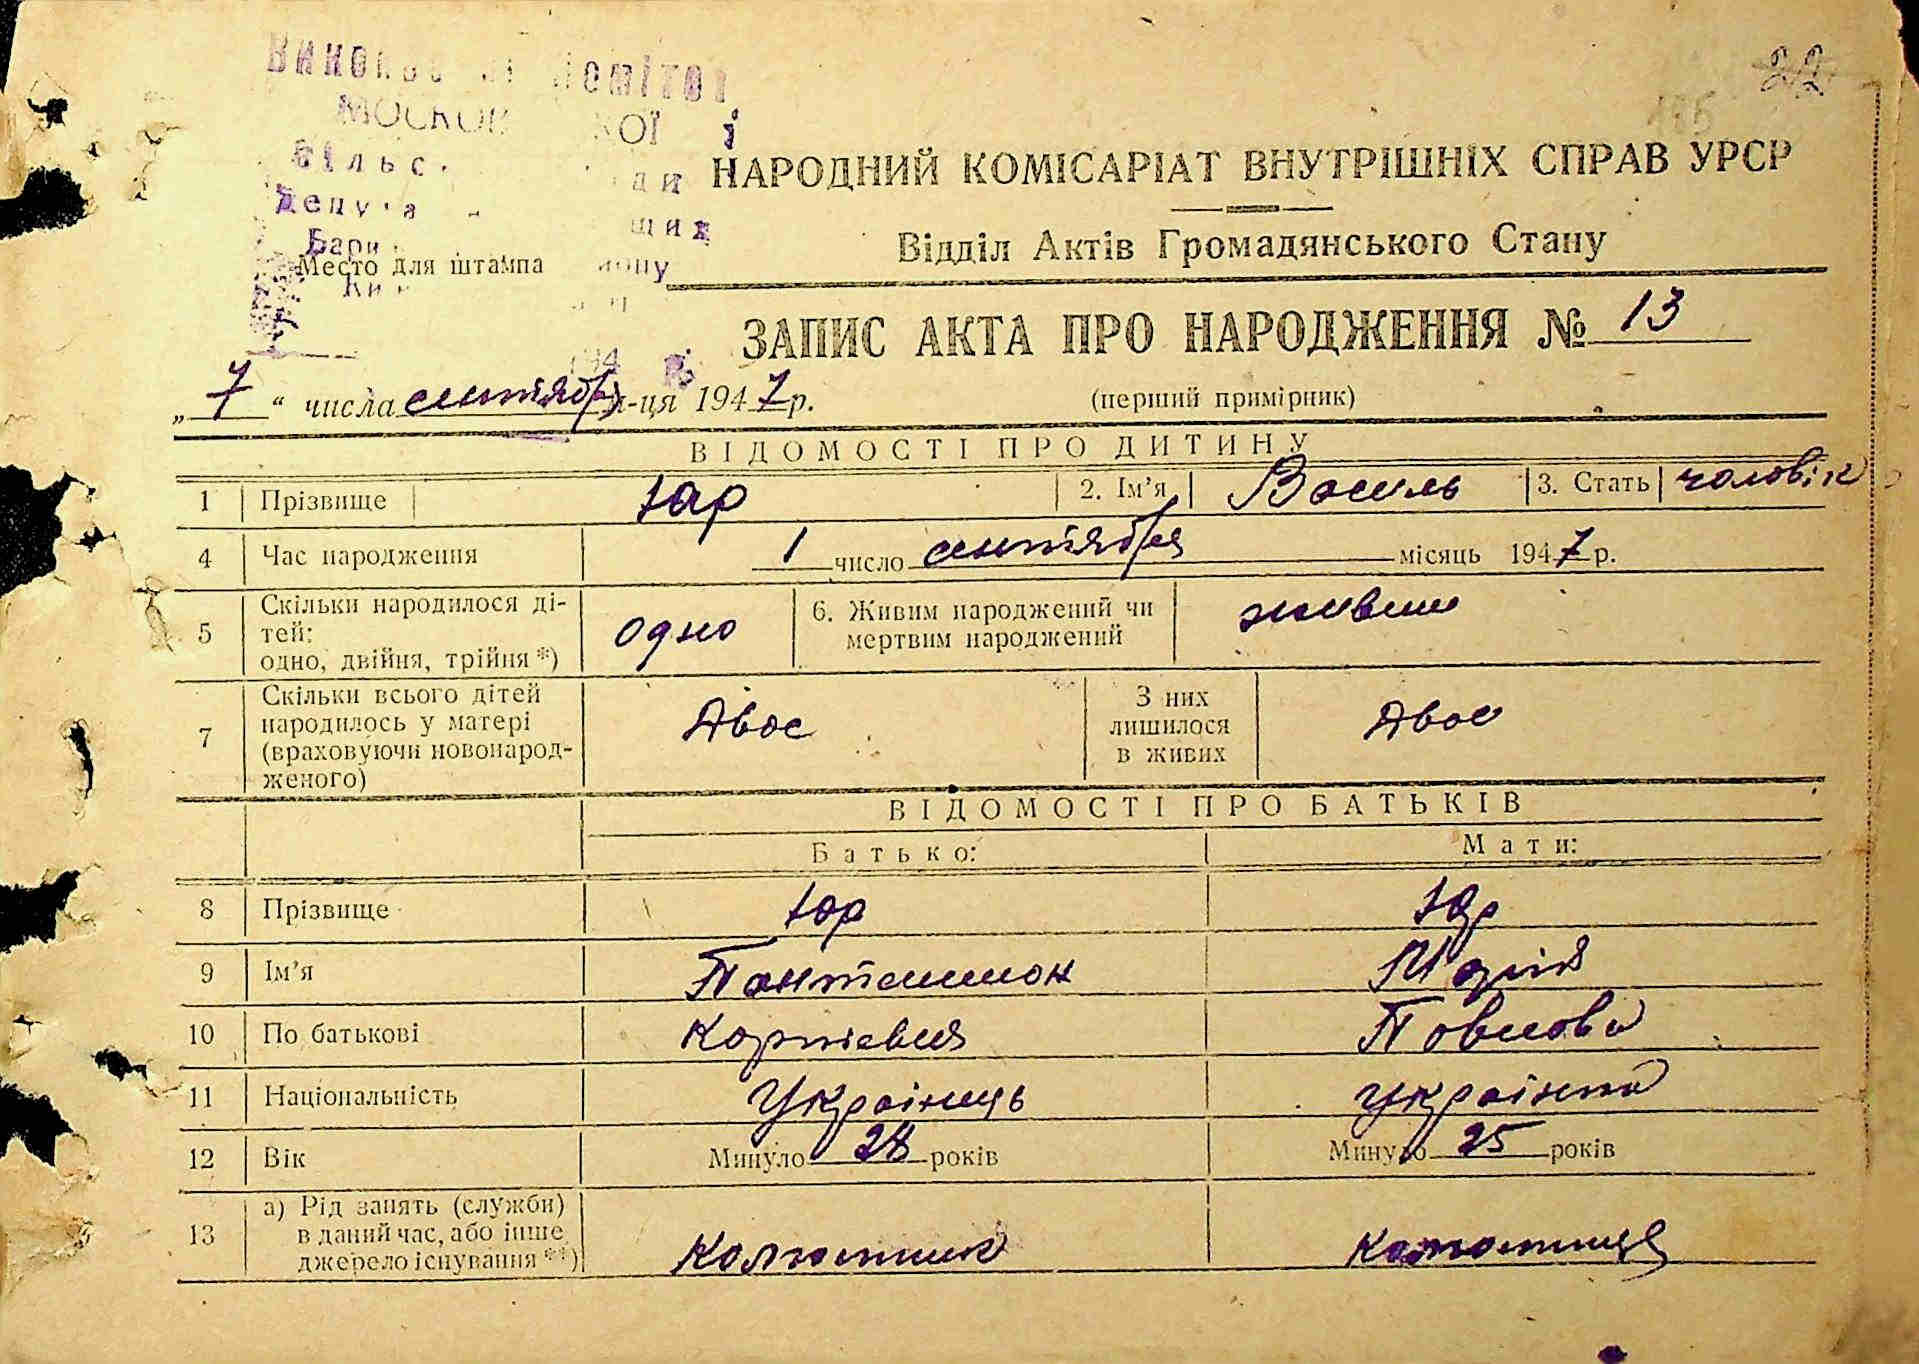 22
НАРОДНИЙ КОМІСАРІАТ ВНУТРІШНІХ СПРАВ УРСР
Відділ Актів Громадянського Стану
Место для штампа
ЗАПИС АКТА ПРО НАРОДЖЕННЯ № 13
„7“ числа сентября м-ця 1947 р. (перший примірник)
ВІДОМОСТІ ПРО ДИТИНУ
1 Прізвище Юар 2. Ім’я Василь 3. Стать чоловік
4 Час народження 1 число сентября місяць 1947 р.
5 Скільки народилося дітей: одно, двійня, трійня *) одно 6. Живим народжений чи мертвим народжений живим
7 Скільки всього дітей народилось у матері (враховуючи новонародженого) Двоє З них лишилося в живих Двоє
ВІДОМОСТІ ПРО БАТЬКІВ
Батько: Мати:
8 Прізвище Юар Юар
9 Ім’я Пантелимон Марія
10 По батькові Карпієвич Павлова
11 Національність Українець Українка
12 Вік Минуло 28 років Минуло 25 років
13 а) Рід занять (служби) в даний час, або інше джерело існування **) Колгоспник Колгоспниця